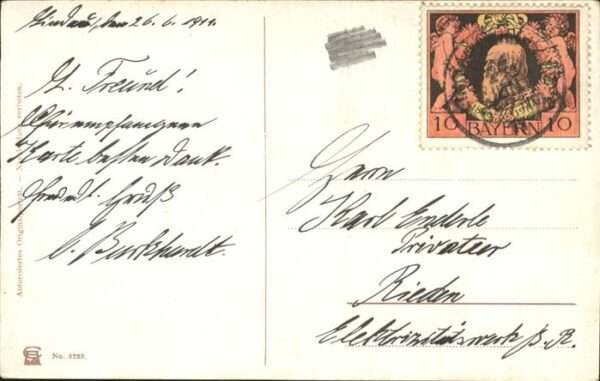 Lindau, den 26. 6. 1911.
L. Freund!
Für empfangene
Karte besten Dank.
Freundl. Gruß
C. Burkhardt.
Autorisiertes Original
No. 5233.
10 BAYERN 10
Herrn
Karl Enderle
Privatier
Rieden
Elektrizitätswerk b. R.